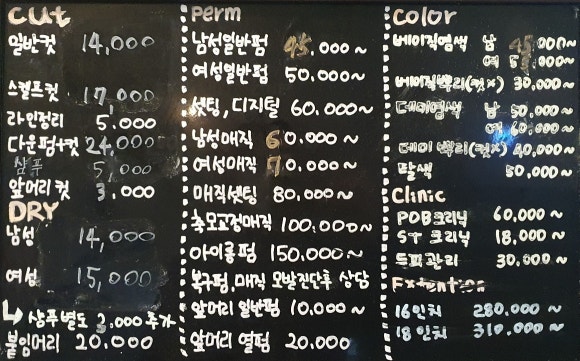 cut
일반컷 14,000
스켈프컷 17,000
라인정리 5.000
다운펌+컷 24,000
샴푸 5,000
앞머리 컷 3.000
DRY
남성 14,000
여성 15,000
↳ 샴푸별도 3.000 추가
붙임머리 20.000
perm
남성일반펌 45.000~
여성일반펌 50.000~
셋팅, 디지털 60.000~
남성매직 60.000~
여성매직 70.000~
매직셋팅 80.000~
축모교정매직 100.000~
아이롱펌 150.000~
복구펌,매직 모발진단후 상담
앞머리 일반펌 10.000~
앞머리 열펌 20.000
color
베이직염색 남 45.000~
여 .000~
베이직뿌리(컷x) 30,000~
데미염색 남 50,000~
여 60.000~
데미 뿌리(컷x) 40,000~
탈색 50,000~
Clinic
POB크리닉 60,000~
ST 크리닉 18,000~
두피관리 30,000~
Extention
16인치 280.000~
18인치 310.000~